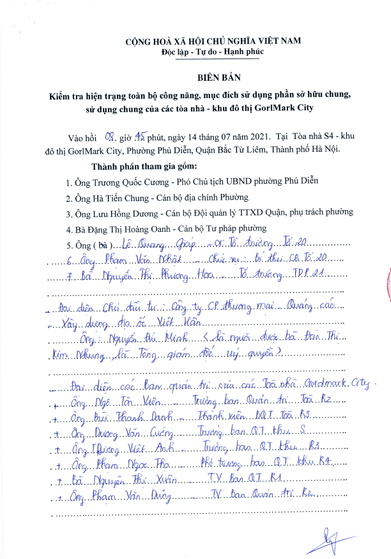 CỘNG HOÀ XÃ HỘI CHỦ NGHĨA VIỆT NAM
Độc lập - Tự do - Hạnh phúc
BIÊN BẢN
Kiểm tra hiện trạng toàn bộ công năng, mục đích sử dụng phần sở hữu chung,
sử dụng chung của các tòa nhà - khu đô thị GorlMark City
Vào hồi 08 giờ 45 phút, ngày 14 tháng 07 năm 2021. Tại Tòa nhà S4 - khu
đô thị GorlMark City, Phường Phú Diễn, Quận Bắc Từ Liêm, Thành phố Hà Nội.
Thành phần tham gia gồm:
1. Ông Trương Quốc Cương - Phó Chủ tịch UBND phường Phú Diễn
2. Ông Hà Tiến Chung - Cán bộ địa chính Phường
3. Ông Lưu Hồng Dương - Cán bộ Đội quản lý TTXD Quận, phụ trách phường
4. Bà Đặng Thị Hoàng Oanh - Cán bộ Tư pháp phường
5. Ông ( bà ) Lê Quang Tổ trưởng Tổ 20
6. Ông Phạm Văn Nhật Chức vụ: Bí thư CB Tổ 20
7. Bà Nguyễn Thị Phương Hoa Tổ trưởng TDP 21
Đại diện Chủ đầu tư: Công ty CP thương mại Quảng cáo
Xây dựng địa ốc Việt Hân
Ông: Nguyễn Đức Minh ( là người được bà Đan Thị
Kim Nhung là Tổng giám đốc uỷ quyền)
Đại diện các ban quản trị của các Toà nhà Goldmark City
+ Ông Ngô Tân Viên Trưởng ban Quản trị Toà R2
+ Ông Bùi Thanh Danh Thành viên BQT Toà R3
+ Ông Dương Văn Cường Trưởng ban QT khu S
+ Ông Dương Việt Anh Trưởng ban QT khu R1
+ Ông Phạm Ngọc Thọ Phó trưởng ban QT khu R4
+ Bà Nguyễn Thị Xuân TV Ban QT R1
+ Ông Phạm Văn Dũng TV Ban Quản trị